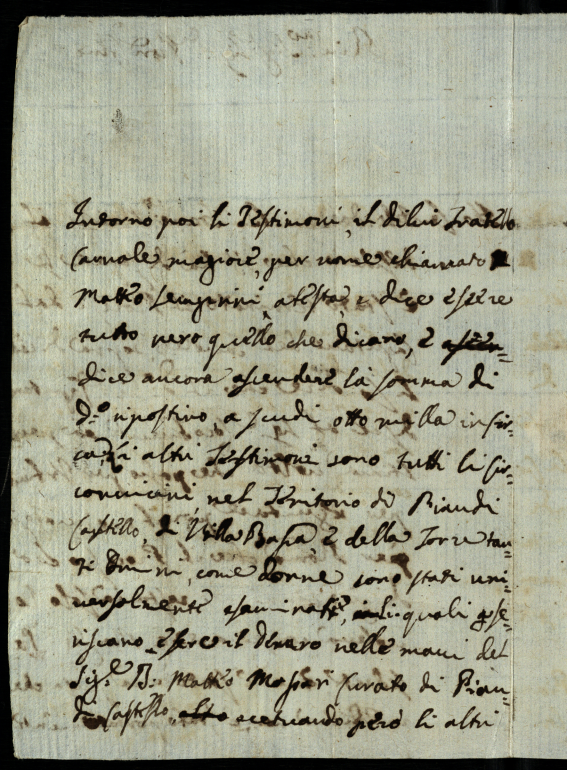 Intorno poi li Testimoni, il dilui Fratello
Carnale magiore, per nome chiamato
Matteo Semprini, atesta, e dice essere
tutto vero quello che dicano, e ascen-
dice ancora ascendere la somma di
d.º ripostino, a scudi otto milla in cir-
ca, Gli altri Testimoni sono tutti li cir-
convicini nel Teritorio di Piandi
Castello, di Villa Bassa e della Torre tan-
ti Omini, come donne sono stati uni-
versalmente esaminati, li quali asse-
riscano, essere il Denaro nelle mani del
Sig.e D: Matteo Massari Curato di Pian-
di Castello, ecetuando però li altri